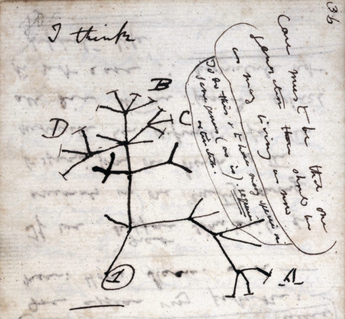 36
I think
case must be that one
generation then should be
as many living as now
To do this & to have many species in
same genus (as is). requires
extinction.
B
C
D
A
1